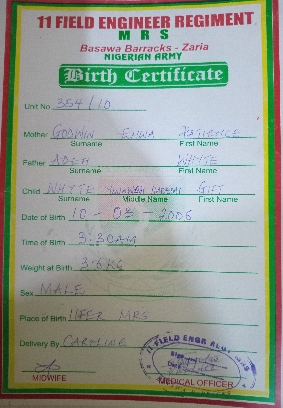 11 FIELD ENGINEER REGIMENT
M R S
Basawa Barracks - Zaria
NIGERIAN ARMY
Birth Certificate
Unit No 354/10
Mother GODWIN ENWA PATIENCE
Surname First Name
Father ADEH WHYTE
Surname First Name
Child WHYTE GIFT
Surname Middle Name First Name
Date of Birth 10 - 03 - 2006
Time of Birth 3:30AM
Weight at Birth 3.6KG
Sex MALE
Place of Birth 11FER MRS
Delivery By CAROLINE
11 FIELD ENGR REGT MRS
MIDWIFE MEDICAL OFFICER